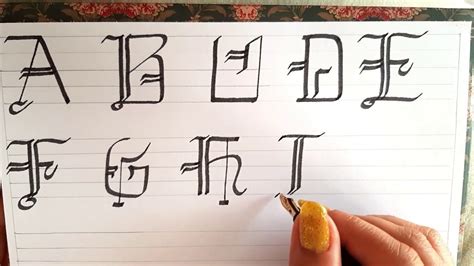 A B C D E
F G H I